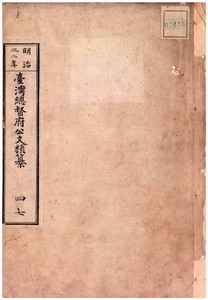 明治
三二年
臺灣總督府公文類纂
四七